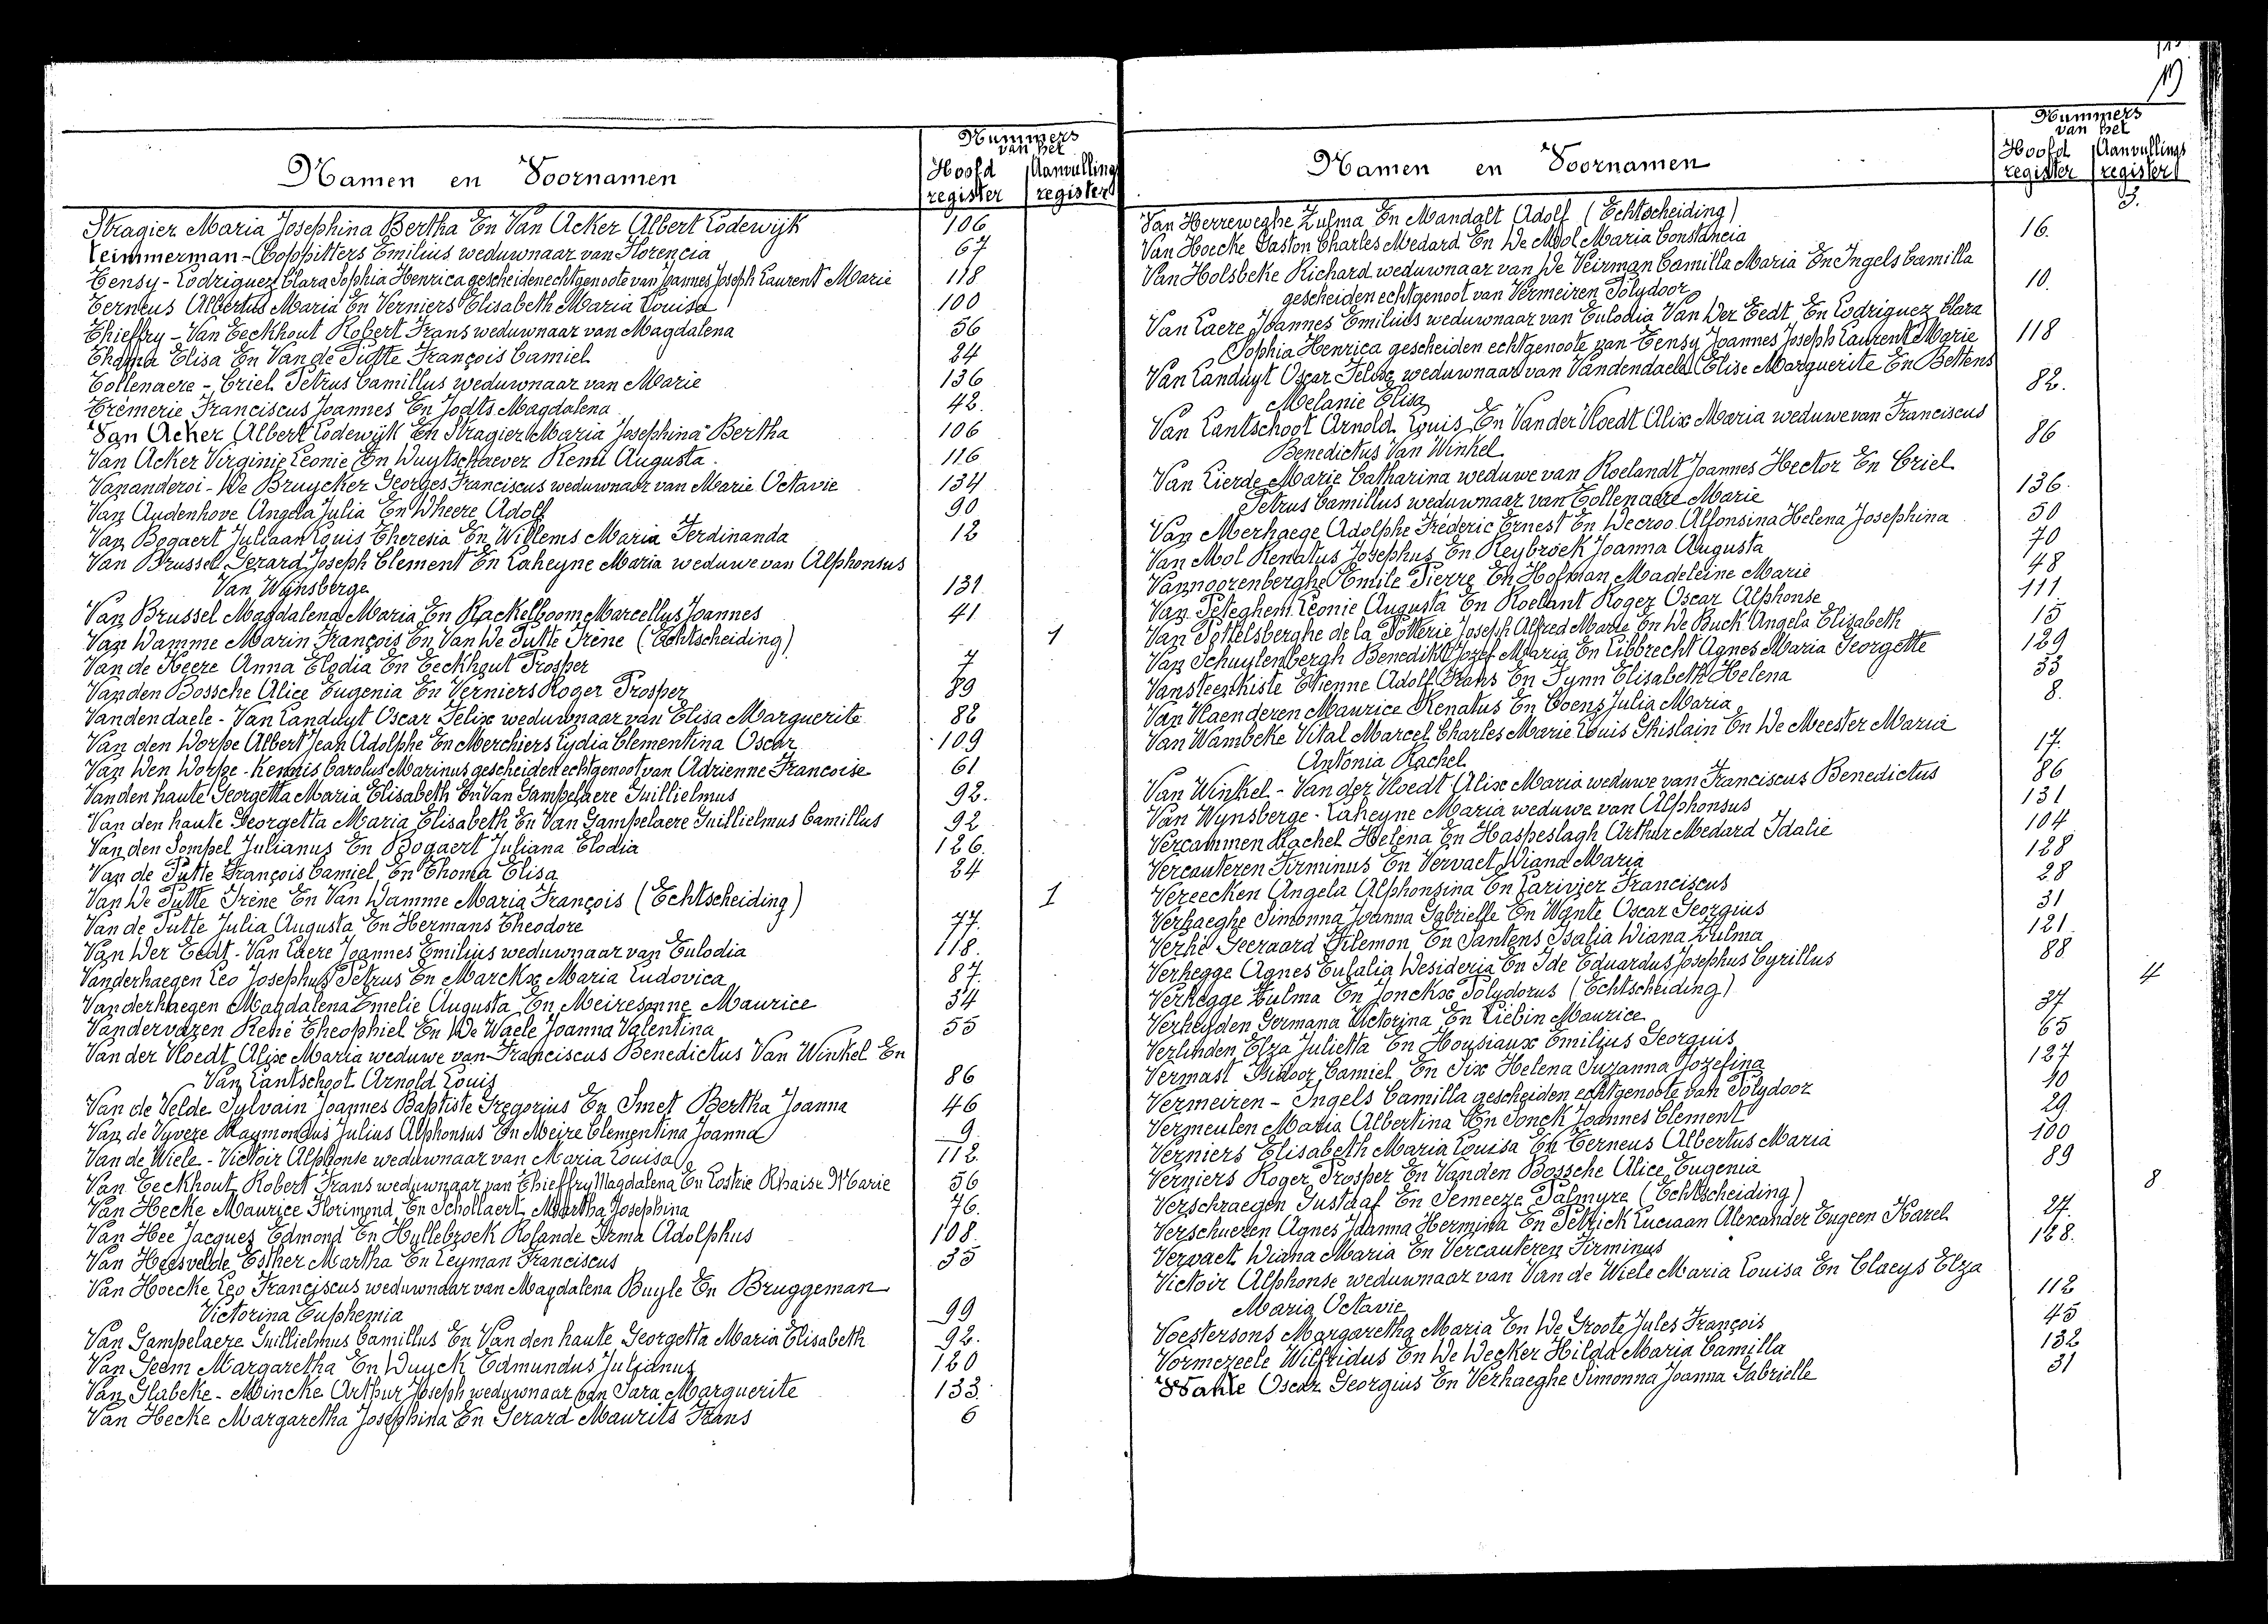 Nummers
van het
Namen en Voornamen Hoofd register Aanvullings register
Stragier Maria Josephina Bertha En Van Acker Albert Lodewijk 106
Teimmerman - Coppitters Emilius weduwnaar van Florencia 67
Tensy - Lodriguez Clara Sophia Henrica gescheiden echtgenoote van Joannes Joseph Laurent Marie 118
Terneus Albertus Maria En Verniers Elisabeth Maria Louisa 100
Thieffry - Van Eeckhout Robert Frans weduwnaar van Magdalena 56
Thoma Elisa En Van de Putte François Camiel 24
Tollenaere - Criel Petrus Camillus weduwnaar van Marie 136
Trémerie Franciscus Joannes En Jodts Magdalena 42.
Van Acker Albert Lodewijk En Stragier Maria Josephina Bertha 106
Van Acker Virginie Leonie En Duytschaever Remi Augusta. 116
Vananderoi - De Bruycker Georges Franciscus weduwnaar van Marie Octavie 134
Van Audenhove Angela Julia En Dheere Adolf 90
Van Bogaert Juliaan Louis Theresia En Willems Maria Ferdinanda 12
Van Brussel Gerard Joseph Clement En Laheyne Maria weduwe van Alphonsus
Van Wynsberge 131.
Van Brussel Magdalena Maria En Rackelboom Marcellus Joannes 41
Van Damme Marin François En Van De Putte Irène (Echtscheiding) 1
Van de Keere Anna Elodia En Eeckhout Prosper 7
Van den Bossche Alice Eugenia En Verniers Roger Prosper 89
Vandendaele - Van Landuyt Oscar Felix weduwnaar van Elisa Marguerite 82
Van den Dorpe Albert Jean Adolphe En Merchiers Lydia Clementina Oscar 109
Van Den Dorpe - Kennis Carolus Marinus gescheiden echtgenoot van Adrienne Francoise 61
Vanden haute Georgetta Maria Elisabeth En Van Gampelaere Guillielmus 92.
Van den haute Georgetta Maria Elisabeth En Van Gampelaere Guillielmus Camillus 92
Van den Sompel Julianus En Bogaert Juliana Elodia 126.
Van de Putte François Camiel En Thoma Elisa 24
Van De Putte Irène En Van Damme Maria François (Echtscheiding) 1
Van de Putte Julia Augusta En Hermans Theodore 77.
Van Der Eedt - Van Laere Joannes Emilius weduwnaar van Eulodia 118.
Vanderhaegen Leo Josephus Petrus En Marckx Maria Ludovica 87.
Vanderhaegen Magdalena Emelie Augusta En Meiresonne Maurice 34
Vandervazen René Theophiel En De Waele Joanna Valentina 55
Van der Vloedt Alix Maria weduwe van Franciscus Benedictus Van Winkel En
Van Lantschoot Arnold Louis 86
Van de Velde Sylvain Joannes Baptiste Gregorius En Smet Bertha Joanna 46
Van de Vyvere Raymondus Julius Alphonsus En Meire Clementina Joanna 9
Van de Wiele - Victoir Alphonse weduwnaar van Maria Louisa 112
Van Eeckhout Robert Frans weduwnaar van Thieffry Magdalena En Marie 56
Van Hecke Maurice Florimond En Schollaert Martha Josephina 76.
Van Hee Jacques Edmond En Hyllebroek Rolande Irma Adolphus 108.
Van Heesvelde Esther Martha En Leyman Franciscus 35
Van Hoecke Leo Franciscus weduwnaar van Magdalena Buyle En Bruggeman
Victorina Euphemia 99
Van Gampelaere Guillielmus Camillus En Van den haute Georgetta Maria Elisabeth 92.
Van Geem Margaretha En Duyck Edmundus Julianus 120
Van Glabeke - Mincke Arthur Joseph weduwnaar van Sara Marguerite 133.
Van Hecke Margaretha Josephina En Gerard Maurits Frans 6
Nummers
van het
Namen en Voornamen Hoofd register Aanvullings register
Van Herreweghe Zulma En Mandalt Adolf (Echtscheiding) 3.
Van Hoecke Gaston Charles Medard En De Mol Maria Constancia 16.
Van Holsbeke Richard weduwnaar van De Veirman Camilla Maria En Ingels Camilla
gescheiden echtgenoot van Vermeiren Polydoor 10.
Van Laere Joannes Emilius weduwnaar van Eulodia Van Der Eedt En Lodriguez Clara
Sophia Henrica gescheiden echtgenoote van Tensy Joannes Joseph Laurent Marie 118
Van Landuyt Oscar Felix weduwnaar van Vandendaele Elise Marguerite En Bettens
Melanie Elisa 82.
Van Lantschoot Arnold Louis En Van der Vloedt Alix Maria weduwe van Franciscus
Benedictus Van Winkel 86
Van Lierde Marie Catharina weduwe van Roelandt Joannes Hector En Criel
Petrus Camillus weduwnaar van Tollenaere Marie 136.
Van Merhaege Adolphe Fréderic Ernest En Decroo Alfonsina Helena Josephina 50
Van Mol Renatus Josephus En Reybroek Joanna Augusta 70
Vannoorenberghe Emile Pierre En Hofman Madeleine Marie 48
Van Peteghem Leonie Augusta En Roelant Roger Oscar Alphonse 111.
Van Pottelsberghe de la Potterie Joseph Alfred Marie En De Buck Angela Elisabeth 15
Van Schuylenbergh Benedikt Jozef Maria En Libbrecht Agnes Maria Georgette 129
Vansteenkiste Etienne Adolf Frans En Fynn Elisabeth Helena 33
Van Vlaenderen Maurice Renatus En Coens Julia Maria 8.
Van Wambeke Vital Marcel Charles Marie Louis Ghislain En De Meester Maria
Antonia Rachel 17.
Van Winkel - Van der Vloedt Alix Maria weduwe van Franciscus Benedictus 86
Van Wynsberge - Laheyne Maria weduwe van Alphonsus 131
Vercammen Rachel Helena En Haspeslagh Arthur Medard Idalie 104
Vercauteren Firminus En Vervaet Diana Maria 128
Vereecken Angela Alphonsina En Larivier Franciscus 28
Verhaeghe Simonna Joanna Gabrielle En Wante Oscar Georgius 31
Verhé Geeraard Filemon En Santens Isalia Diana Zulma 121.
Verhegge Agnes Eulalia Desideria En Ide Eduardus Josephus Cyrillus 88
Verhegge Zulma En Jonckx Polydorus (Echtscheiding) 4
Verheyden Germana Victorina En Liebin Maurice 37
Verlinden Elza Julietta En Housiaux Emilius Georguis 65
Vermast Isidoor Camiel En Six Helena Suzanna Jozefina 127
Vermeiren - Ingels Camilla gescheiden echtgenoote van Polydoor 10
Vermeulen Maria Albertina En Sonck Joannes Clement 29
Verniers Elisabeth Maria Louisa En Terneus Albertus Maria 100
Verniers Roger Prosper En Vanden Bossche Alice Eugenia 89
Verschraegen Gustaaf En Semeeze Palmyre (Echtscheiding) 8
Verschueren Agnes Joanna Hermina En Petrick Luciaan Alexander Eugeen Karel 27.
Vervaet Diana Maria En Vercauteren Firminus 128.
Victoir Alphonse weduwnaar van Van de Wiele Maria Louisa En Claeys Elza
Maria Octavie 112
Voestersons Margaretha Maria En De Groote Jules François 45
Vormezeele Wilfridus En De Decker Hilda Maria Camilla 132
Wante Oscar Georgius En Verhaeghe Simonna Joanna Gabrielle 31